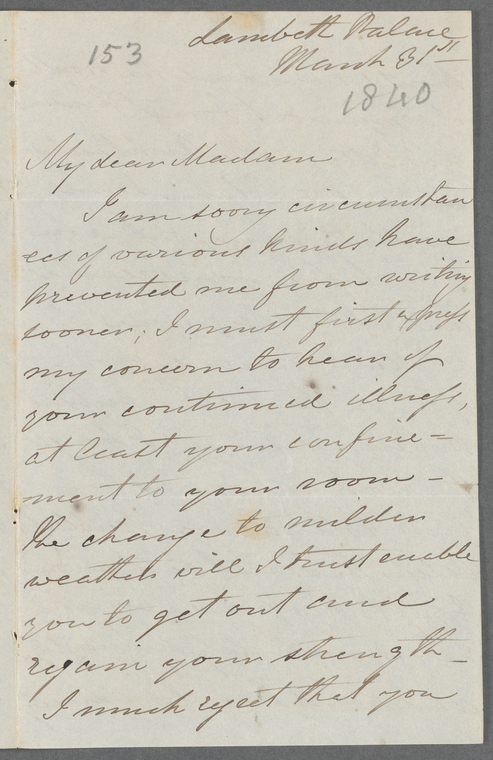 Lambeth Palace
153
March 31st
1840
My dear Madam
I am sorry circumstan
ces of various kinds have
prevented me from writing
sooner; I must first express
my concern to hear of
your continued illness,
at least your confine=
ment to your room -
the change to milder
weather will I trust enable
you to get out and
regain your strength -
I much regret that you